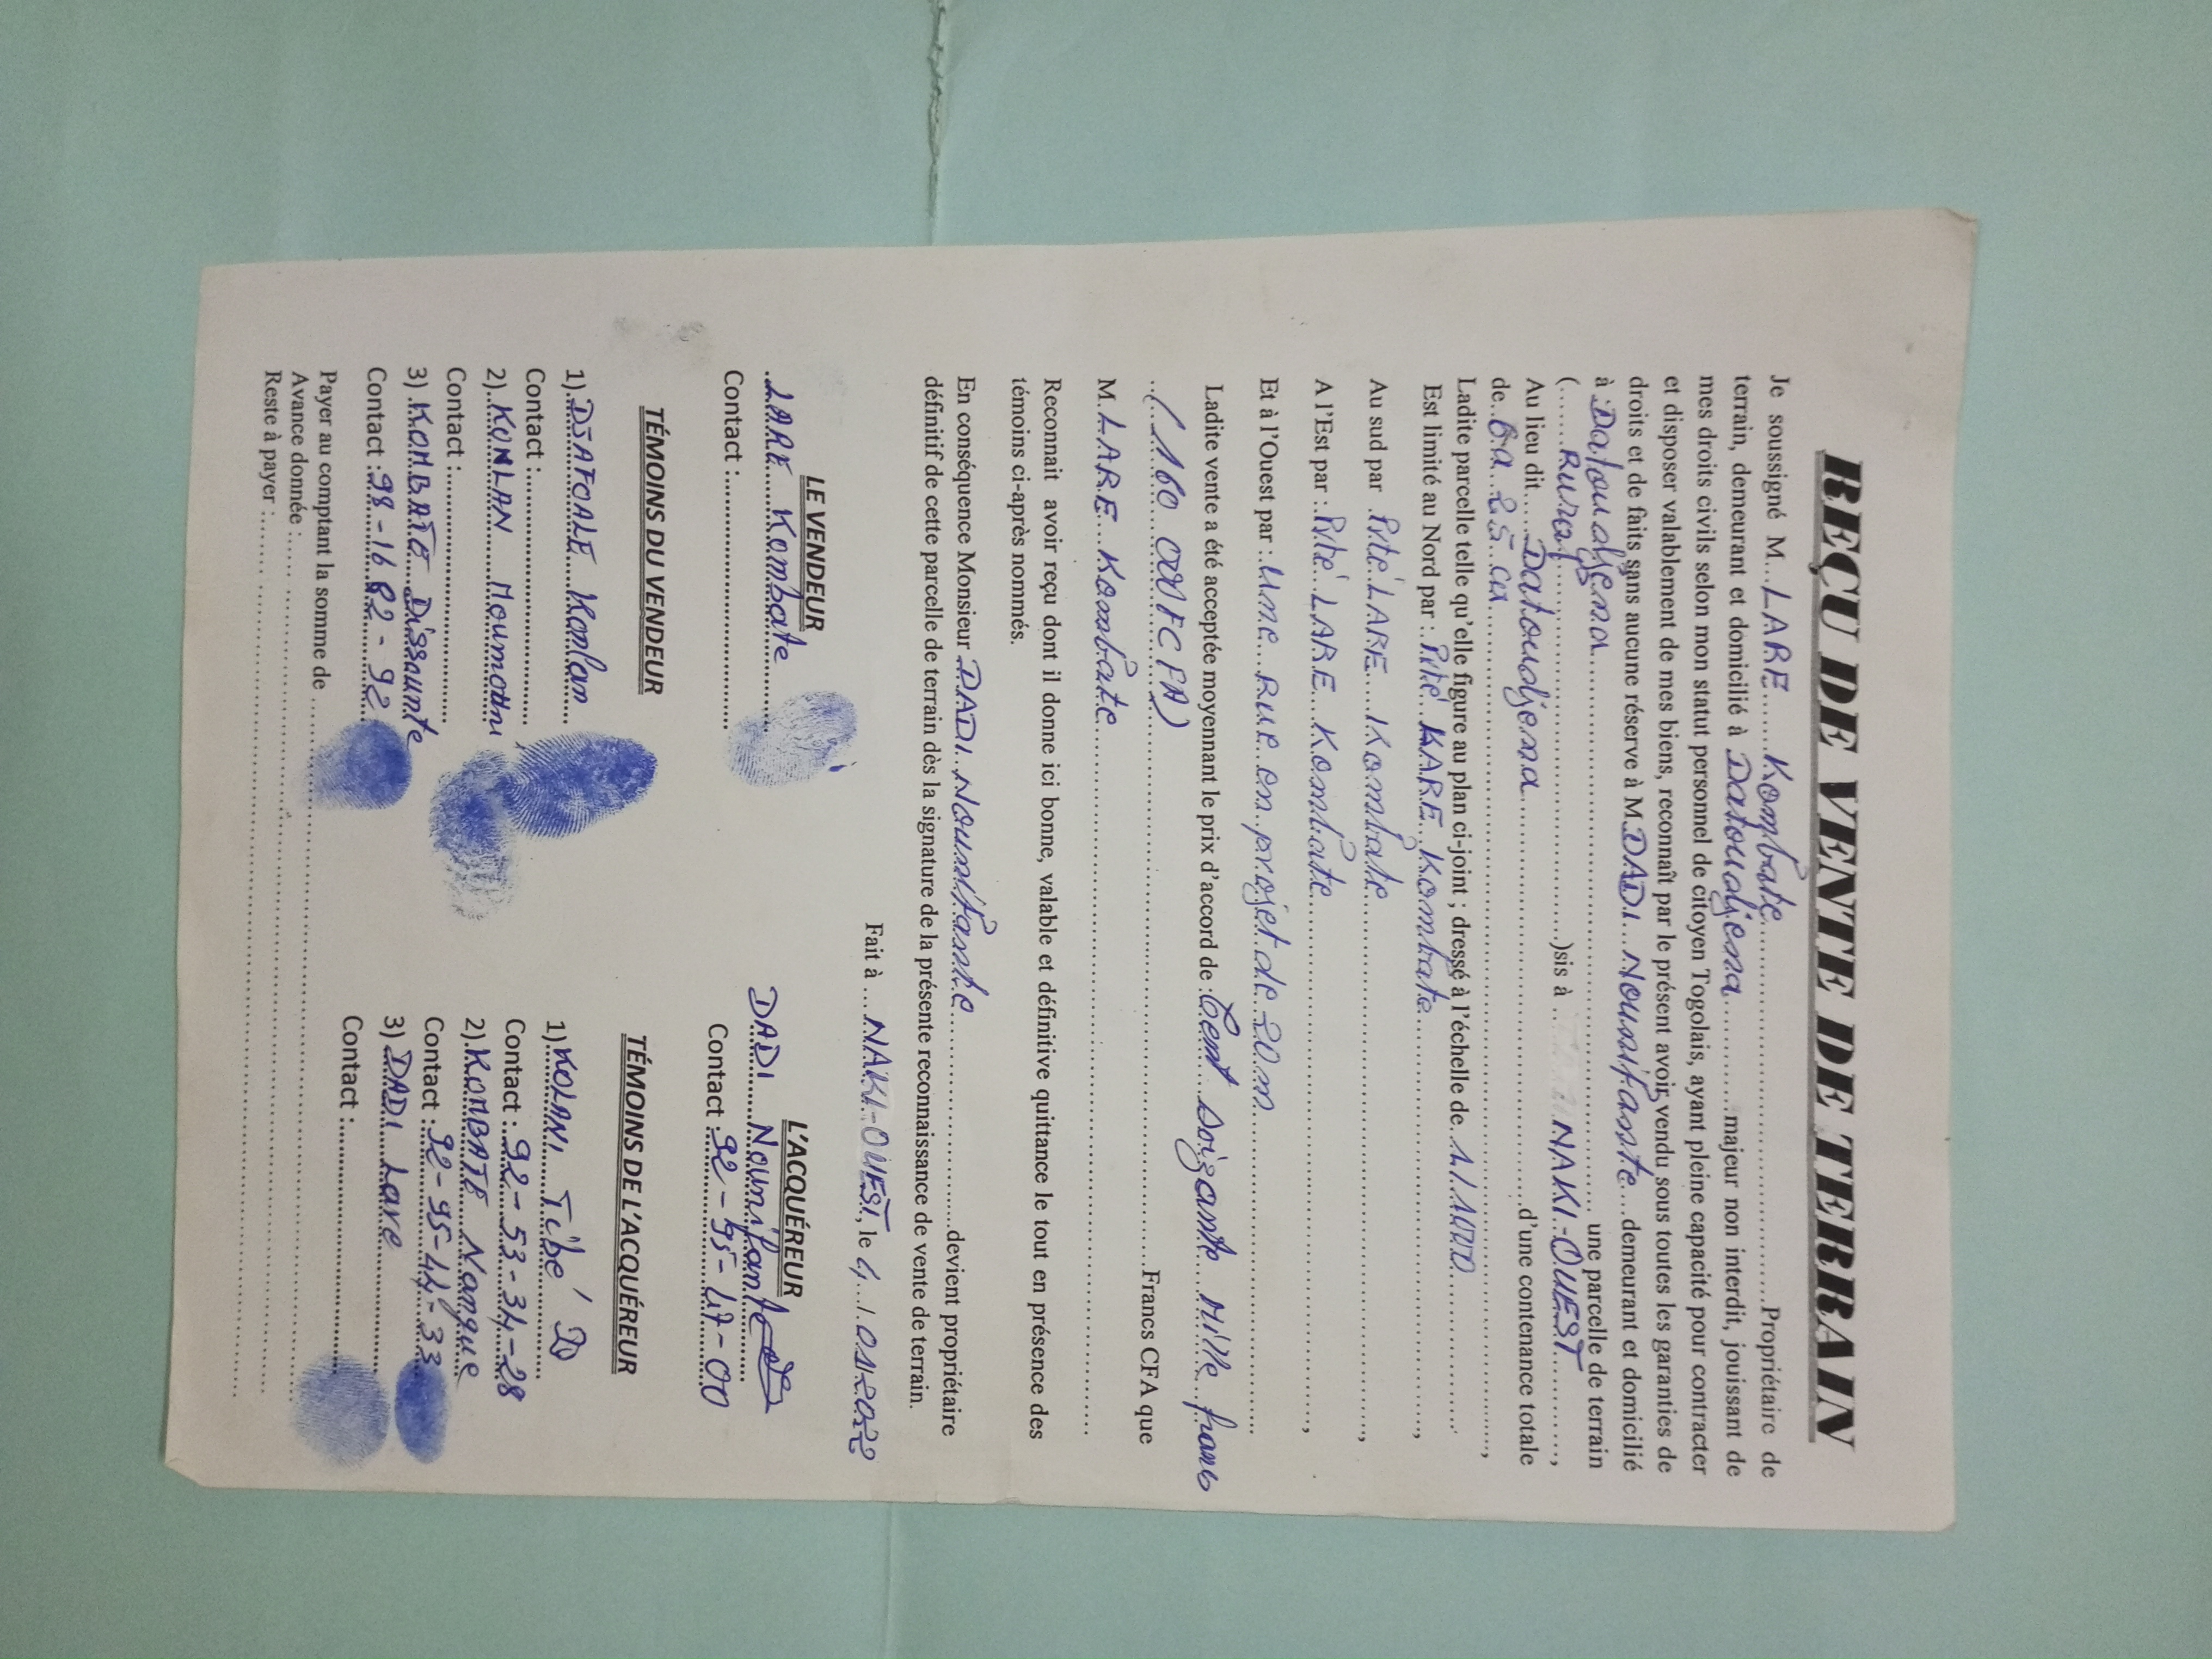 REÇU DE VENTE DE TERRAIN
Je soussigné M...LARE......Kombate..............Propriétaire de
terrain, demeurant et domicilié à Datoudjena.........majeur non interdit, jouissant de
mes droits civils selon mon statut personnel de citoyen Togolais, ayant pleine capacité pour contracter
et disposer valablement de mes biens, reconnaît par le présent avoir vendu sous toutes les garanties de
droits et de faits sans aucune réserve à M.DADI...Nounifante...demeurant et domicilié
à Datoudjena.................... une parcelle de terrain
(......Rural....................)sis à ... NAKI-OUEST.........,
Au lieu dit....Datoudjena....................d'une contenance totale
de..6a..25..ca....................,
Ladite parcelle telle qu'elle figure au plan ci-joint ; dressé à l'échelle de 1/1000...........
Est limité au Nord par :.Pité..LARE..Kombate....................,
Au sud par .Pité.LARE...Kombate....................,
A l'Est par :.Pité.LARE..Kombate....................,
Et à l'Ouest par :.Une...Rue..en.projet.de.20.m....................
Ladite vente a été acceptée moyennant le prix d'accord de :Cent...soixante...Mille..francs
..(..160 000FCFA)....................Francs CFA que
M.LARE...Kombate....................
Reconnait avoir reçu dont il donne ici bonne, valable et définitive quittance le tout en présence des
témoins ci-après nommés.
En conséquence Monsieur DADI..Nounifante....................devient propriétaire
définitif de cette parcelle de terrain dès la signature de la présente reconnaissance de vente de terrain.
Fait à ....NAKI-OUEST, le 4../.01/2022
LE VENDEUR
.LARE...Kombate..........
Contact :....................
L'ACQUÉREUR
DADI....Nounifante
Contact :92-95-47-00
TÉMOINS DU VENDEUR
1).DJAFOALE...Konlan....
Contact :....................
2).KONLAN....Moumoni
Contact :....................
3).KOMBATE...Dissaunte
Contact :98-16 82-92
TÉMOINS DE L'ACQUÉREUR
1).KOLANI...Tibé
Contact :.92-53-34-28
2).KOMBATE...Nangue
Contact :.92-95-44-33
3).DADI...Lare..........
Contact :....................
Payer au comptant la somme de ....................
Avance donnée :....................
Reste à payer :....................